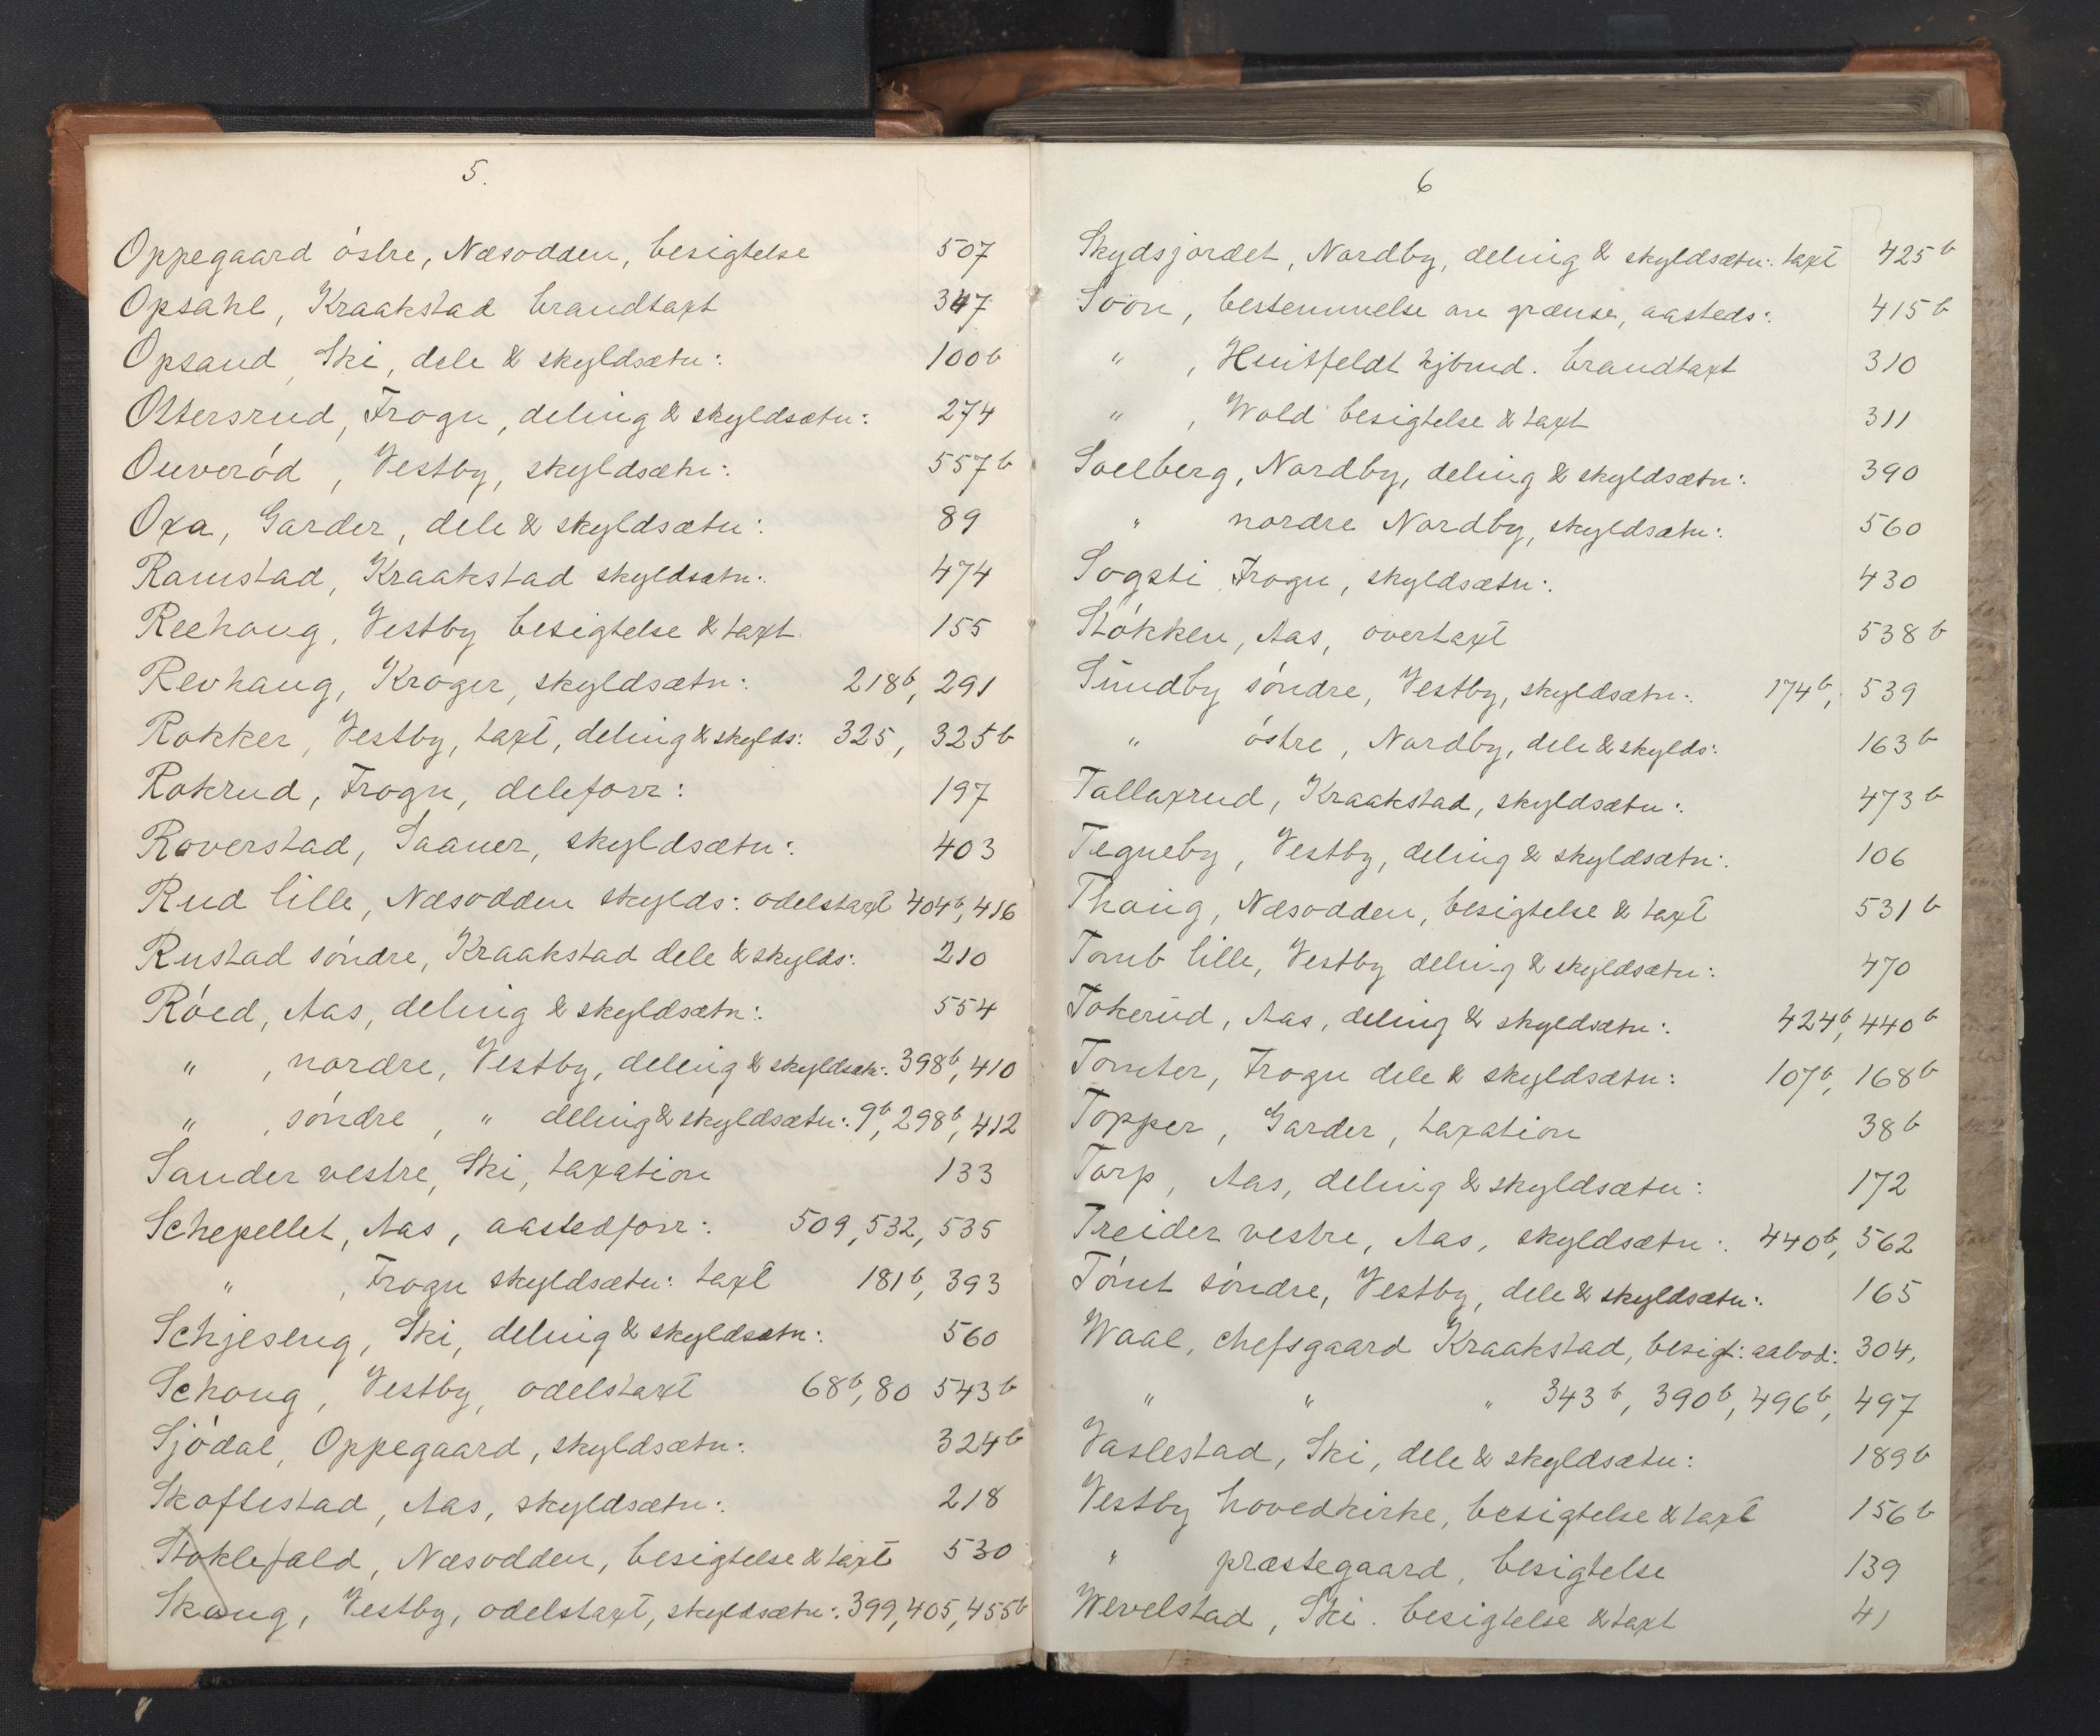 5.
Oppegaard östre, Næsodden, besigtelse 507
Opsahl, Kraakstad brandtaxt 347
Opsand, Ski, dele & skyldsætn: 100b
Ottersrud, Frogn, deling & skyldsætn: 274
Ouveröd, Vestby, skyldsætn: 557b
Oxa, Garder, dele & skyldsætn: 89
Ramstad, Kraakstad skyldsætn: 474
Reehoug, Vestby besigtelse & taxt 155
Revhaug, Kroger, skyldsætn: 218b, 291
Rokker, Vestby, taxt, deling & skylds: 325, 325b
Rokrud, Frogn, deleforr: 197
Roverstad, Saaner, skyldsætn: 403
Rud lille, Næsodden skylds: odelstaxt 404b, 416
Rustad söndre, Kraakstad dele & skylds: 210
Röed, Aas, deling & skyldsætn: 554
" , nordre, Vestby, deling & skyldsætn: 398b, 410
" , söndre, " deling & skyldsætn: 9b, 298b, 412
Sander vestre, Ski, taxation 133
Schepellet, Aas, aastedforr: 509, 532, 535
" , Frogn skyldsætn: taxt 181b, 393
Schjeseng, Ski, deling & skyldsætn: 560
Schoug, Vestby, odelstaxt 68b, 80 543b
Sjödal, Oppegaard, skyldsætn: 324b
Skoftestad, Aas, skyldsætn: 218
Stoklefald, Næsodden, besigtelse & taxt 530
Skoug, Vestby, odelstaxt, skyldsætn: 399, 405, 455b
6
Skydsjordet, Nordby, deling & skyldsætn: taxt 425b
Soon, bestemmelse om grænse, aasteds: 415b
" , Huitfeldt hjbmd. brandtaxt 310
" , Wold besigtelse & taxt 311
Soelberg, Nordby, deling & skyldsætn: 390
" nordre Nordby, skyldsætn: 560
Sogsti Frogn, skyldsætn: 430
Stökken, Aas, overtaxt 538b
Sundby söndre, Vestby, skyldsætn: 174b, 539
" östre, Nordby, dele & skylds: 163b
Tallaxrud, Kraakstad, skyldsætn: 473b
Tegneby, Vestby, deling & skyldsætn: 106
Thoug, Næsodden, besigtelse & taxt 531b
Tomb lille, Vestby deling & skyldsætn: 470
Tokerud, Aas, deling & skyldsætn: 424b, 440b
Tomter, Frogn dele & skyldsætn: 107b, 168b
Topper, Garder, taxation 38b
Torp, Aas, deling & skyldsætn: 172
Treider vestre, Aas, skyldsætn: 440b, 562
Tömt söndre, Vestby, dele & skyldsætn: 165
Waal, chefsgaard Kraakstad, besigt: aabod: 304,
" " " 343b, 390b, 496b, 497
Vaslestad, Ski, dele & skyldsætn: 189b
Vestby hovedkirke, besigtelse & taxt 156b
" præstegaard, besigtelse 139
Wevelstad, Ski. besigtelse & taxt 41